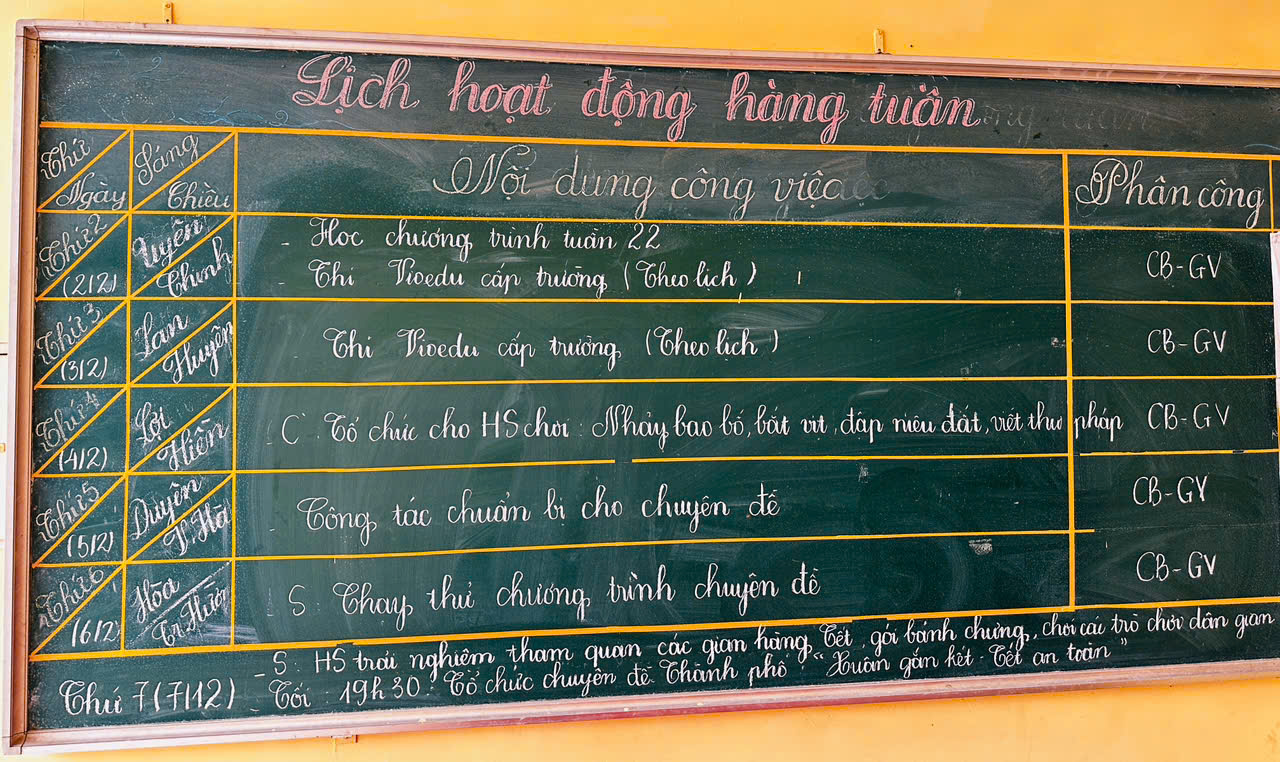 Lịch hoạt động hàng tuần
Thứ Ngày Sáng Chiều Nội dung công việc Phân công
Thứ 2 (2/2) Uyên Chinh
- Học chương trình tuần 22
- Thi Vioedu cấp trường (Theo lịch)
CB-GV
Thứ 3 (3/2) Lan Huyên
Thi Vioedu cấp trường (Theo lịch)
CB-GV
Thứ 4 (4/2) Lợi Hiền
- C: Tổ chức cho HS chơi: Nhảy bao bố, bắt vịt, đập niêu đất, viết thư pháp
CB-GV
Thứ 5 (5/2) Duyên
- Công tác chuẩn bị cho chuyên đề
CB-GV
Thứ 6 (6/2) Hòa
- S: Chạy thử chương trình chuyên đề
CB-GV
Thứ 7 (7/12)
- S: HS trải nghiệm tham quan các gian hàng Tết, gói bánh chưng, chơi các trò chơi dân gian
- Tối: 19h30: Tổ chức chuyên đề Thành phố "Xuân gắn kết - Tết an toàn"